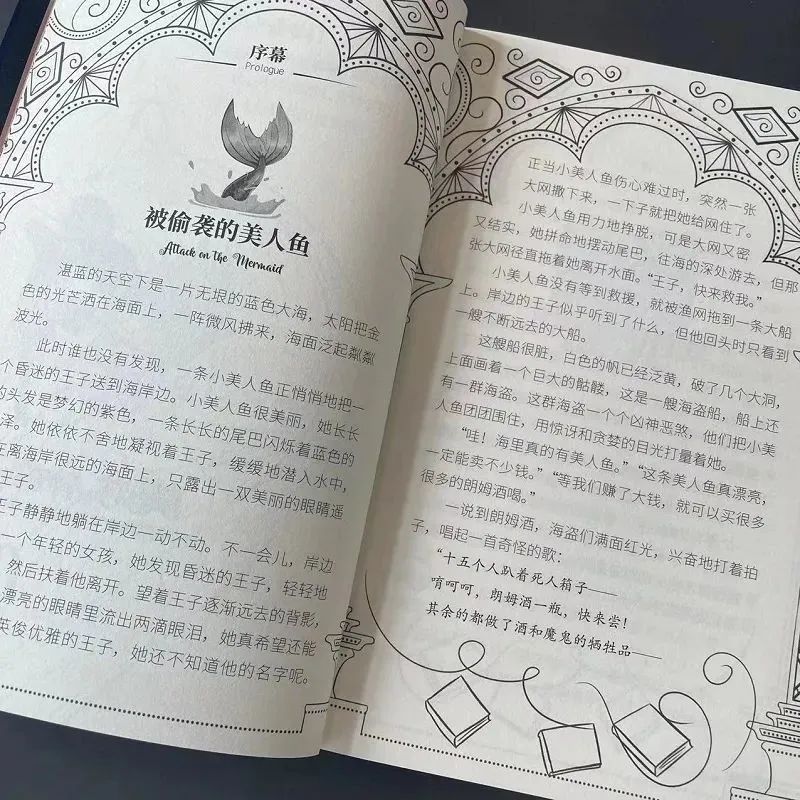 序幕
Prologue
被偷袭的美人鱼
Attack on the Mermaid
湛蓝的天空下是一片无垠的蓝色大海，太阳把金
色的光芒洒在海面上，一阵微风拂来，海面泛起粼粼
波光。
此时谁也没有发现，一条小美人鱼正悄悄地把一
个昏迷的王子送到海岸边。小美人鱼很美丽，她长长
的头发是梦幻的紫色，一条长长的尾巴闪烁着蓝色的
泽。她依依不舍地凝视着王子，缓缓地潜入水中，
在离海岸很远的海面上，只露出一双美丽的眼睛遥
王子。
王子静静地躺在岸边一动不动。不一会儿，岸边
一个年轻的女孩，她发现昏迷的王子，轻轻地
，然后扶着他离开。望着王子逐渐远去的背影，
漂亮的眼睛里流出两滴眼泪，她真希望还能
英俊优雅的王子，她还不知道他的名字呢。
正当小美人鱼伤心难过时，突然一张
大网撒下来，一下子就把她给网住了。
小美人鱼用力地挣脱，可是大网又密
又结实，她拼命地摆动尾巴，往海的深处游去，但那
张大网径直拖着她离开水面。“王子，快来救我。”
小美人鱼没有等到救援，就被渔网拖到一条大船
上。岸边的王子似乎听到了什么，但他回头时只看到
一艘不断远去的大船。
这艘船很脏，白色的帆已经泛黄，破了几个大洞，
上面画着一个巨大的骷髅，这是一艘海盗船，船上还
有一群海盗。这群海盗一个个凶神恶煞，他们把小美
人鱼团团围住，用惊讶和贪婪的目光打量着她。
“哇！海里真的有美人鱼。”“这条美人鱼真漂亮，
一定能卖不少钱。”“等我们赚了大钱，就可以买很多
很多的朗姆酒喝。”
一说到朗姆酒，海盗们满面红光，兴奋地打着拍
子，唱起一首奇怪的歌：
“十五个人趴着死人箱子——
唷呵呵，朗姆酒一瓶，快来尝！
其余的都做了酒和魔鬼的牺牲品——